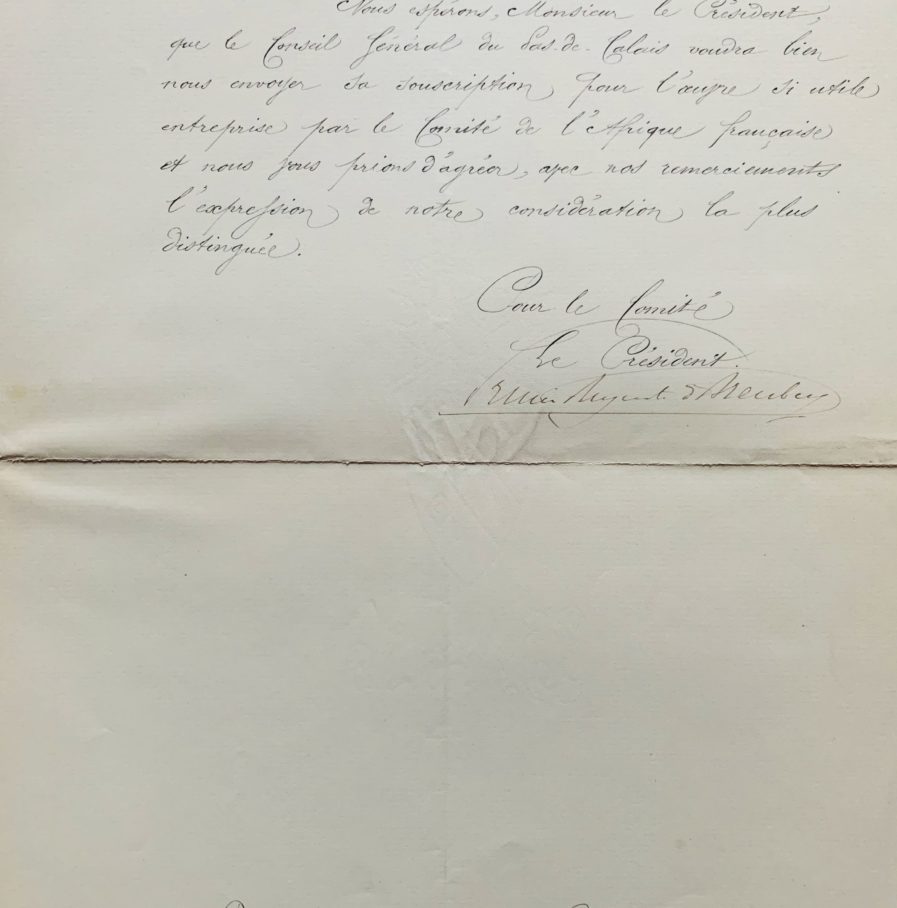 Nous espérons, Monsieur le Président,
que le Conseil Général du Pas-de-Calais voudra bien
nous envoyer sa souscription pour l'œuvre si utile
entreprise par le Comité de l'Afrique française
et nous vous prions d'agréer, avec nos remerciements
l'expression de notre considération la plus
distinguée.
Pour le Comité
Le Président.
Prince Auguste d'Arenberg